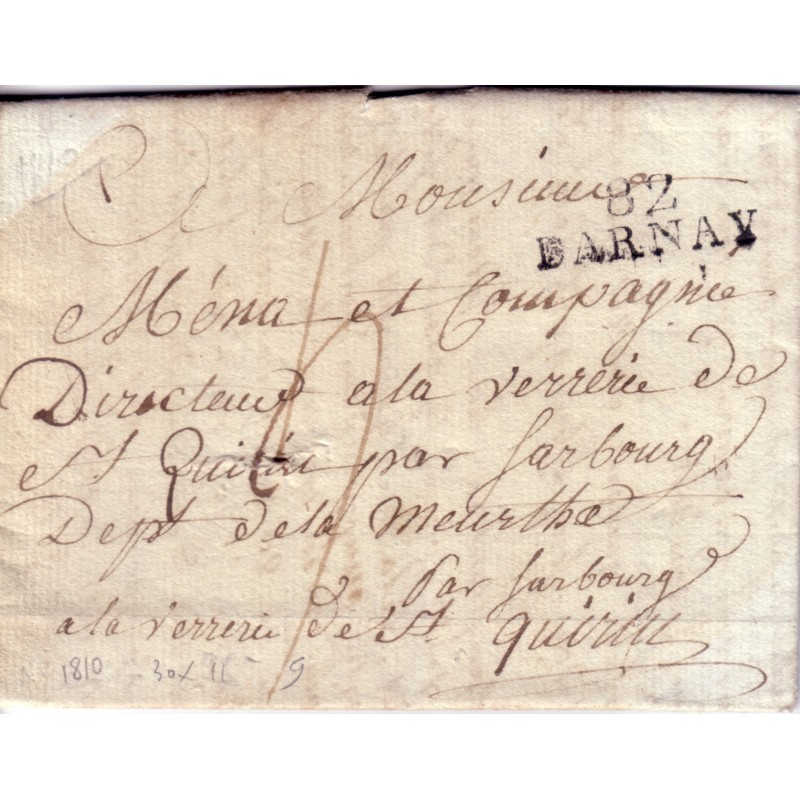 A Monsieur
82
DARNAY
Ména et Compagnie
Directeur a la verrerie de
St Quirin par Sarbourg
Dept de la Meurthe
Par Sarbourg
a la verrerie de St quirin
1810 30x11 9